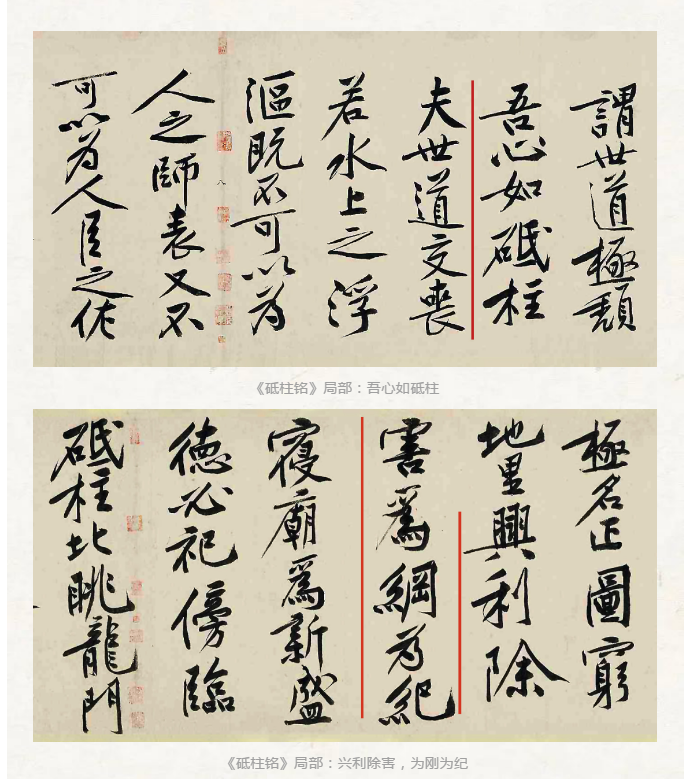 謂世道極頹
吾心如砥柱
夫世道交喪
若水上之浮
漚既不可以为
人之師表又不
可以为人臣之佐
《砥柱铭》局部：吾心如砥柱
極名正圖窮
地里興利除
害爲綱为紀
寢廟爲新盛
德必祀傍臨
砥柱北眺龍門
《砥柱铭》局部：兴利除害，为刚为纪